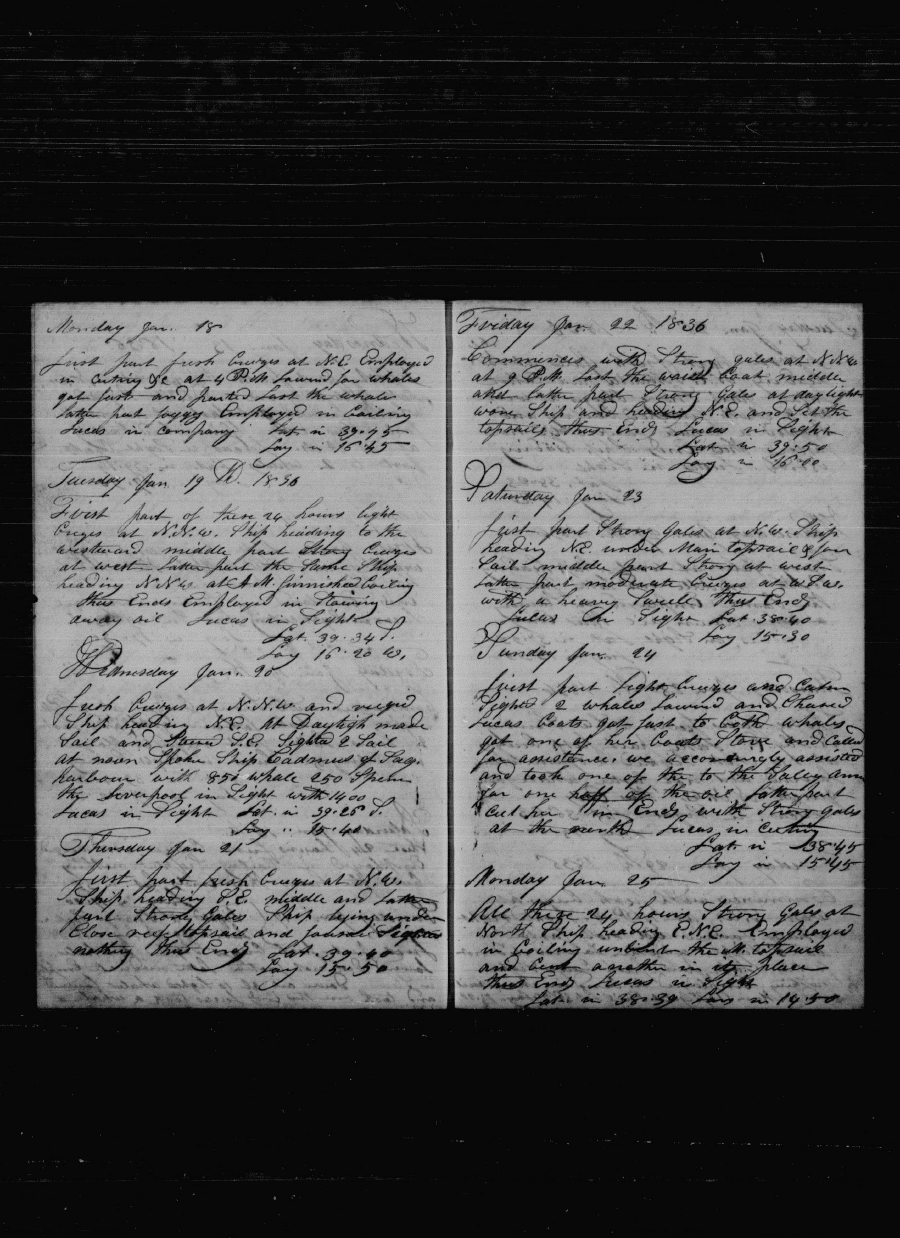 Monday Jan. 18
first part fresh brezes at N.E Employed
in cuting &c at 4 P.M Lowerd for whales
got fast and parted Lost the whale
latter part foggy Employed in boiling
Lucas in company Lat in 39.45
Log in 16.45
Tuesday Jan 19 D. 1836
First part of these 24 hours light
brezes at N.N.W. Ship heading to the
westward middle part strong brezes
at west Latter part the same Ship
heading N.N.W. at A.M. finnished boiling
thus Ends Employed in stowing
away oil Lucas in Sight
Lat. 39.34 S.
Log 16.20 W.
Wednesday Jan. 20
fresh brezes at N.N.W and
Ship heading N.E. At Dayligh made
Sail and Steerd S.E. Sighted 2 Sail
at noon Spoke Ship Cadmus of Sag.
harbour with 850 whale 250 Sperm
the Liverpool in Sight with 1400
Lucas in Sight Lat. in 39.26 S.
Log " 15.40
Thursday Jan 21
first part fresh brezes at N.W.
Ship heading S.E. middle and latter
part Strong Gales Ship lying under
Close reef topsail and foresail Sighted
nothing thus Ends Lat. 39.40
Log 15.50
Friday Jan 22 1836
Commences with Strong gales at N.N.W
at 9 P.M. Lost the waist boat middle
and latter part Strong Gales at daylight
wore Ship and heading N.E. and Set the
topsails thus Ends Lucas in Sight
Lat in 39.50
Log in 16.00
Saturday Jan 23
first part Strong Gales at N.W. Ship
heading N.E. under Main topsail & fore
Sail middle part Strong at west
Latter part moderate brezes at W.S.W.
with a heavy Swell thus Ends
Lucas in Sight Lat. 38.40
Log 15.30
Sunday Jan. 24
first part light brezes and Calm
Sighted 2 whales Lowerd and Chased
Lucas boats got fast to both whales
got one of her boats Stove and Called
for assistance. we accordingly assisted
and took one of the to the
for one half of the oil latter part
Cut her in Ends with Strong gales
at the north Lucas in Cutting
Lat in 38.45
Log in 15.45
Monday Jan. 25
All these 24 hours Strong Gales at
North Ship heading E.N.E. Employed
in boiling unbent the M. topsail
and bent another in its place
thus Ends Lucas in Sight
Lat. in 38.39 Log in 14.50